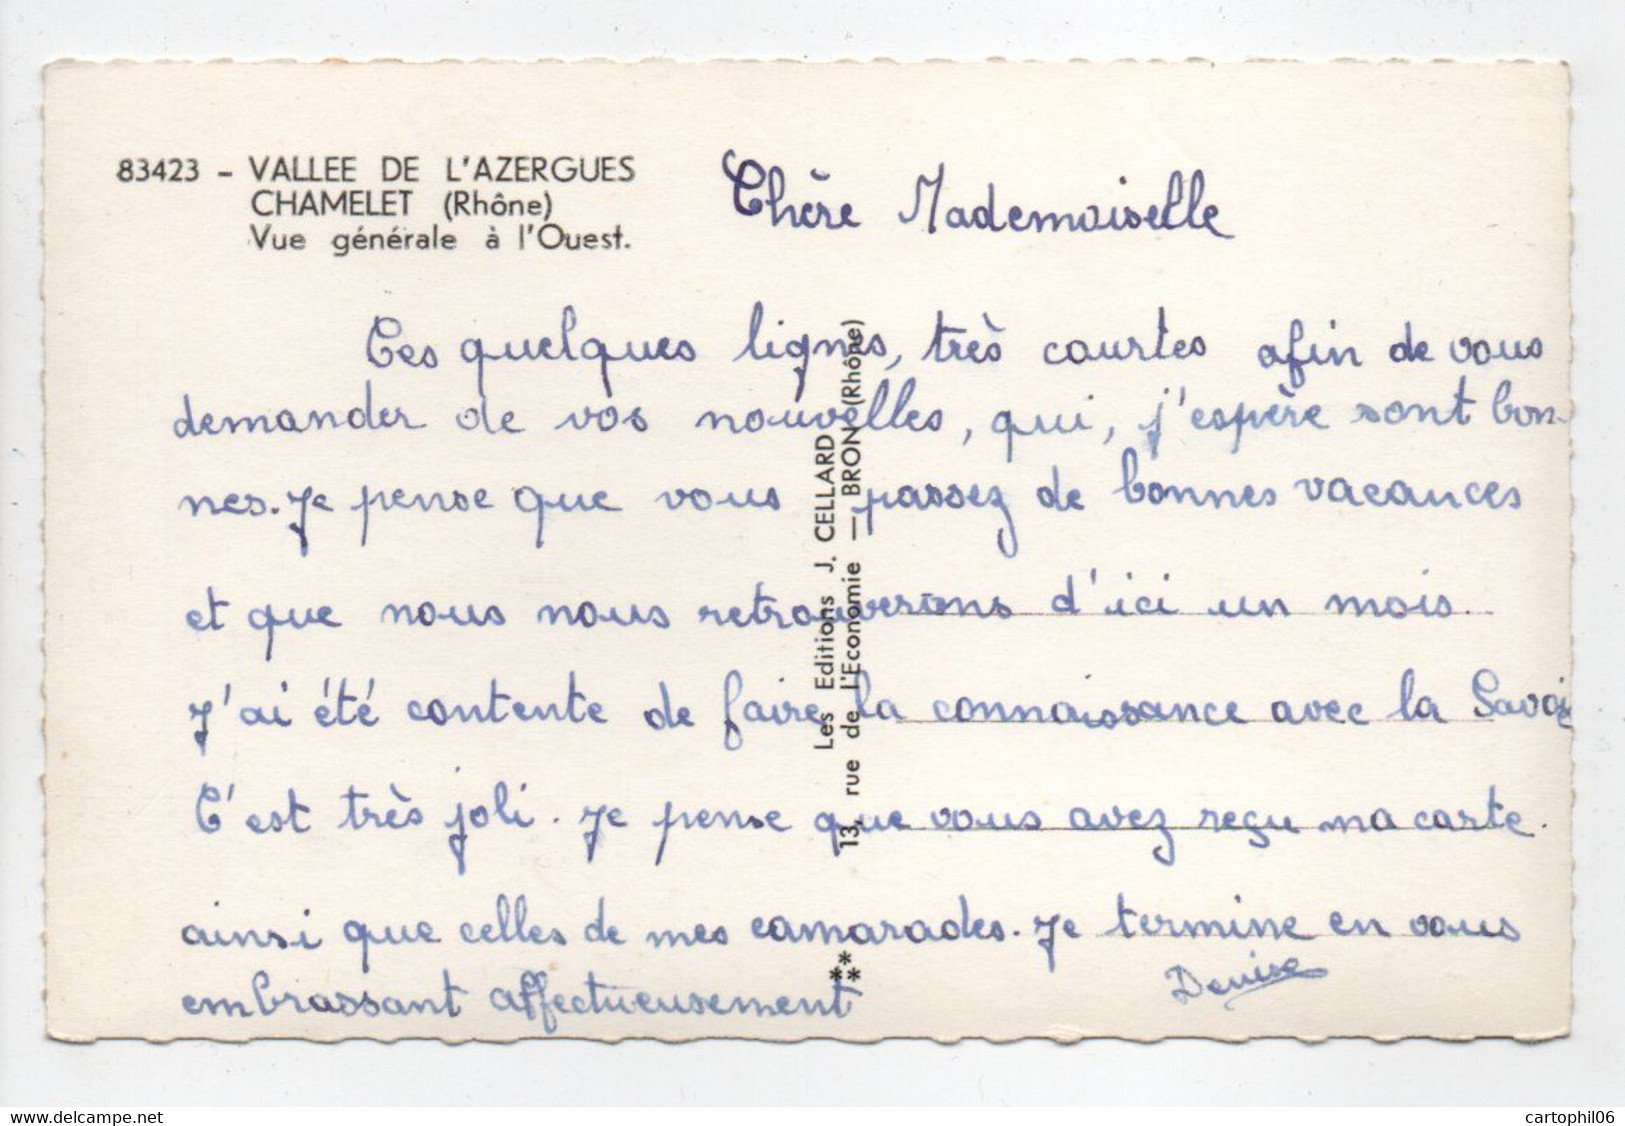 83423 - VALLEE DE L'AZERGUES
CHAMELET (Rhône)
Vue générale à l'Ouest.
Chère Mademoiselle
Ces quelques lignes, très courtes afin de vous
demander de vos nouvelles, qui, j'espère sont bon-
nes. Je pense que vous passez de bonnes vacances
et que nous nous retrouverons d'ici un mois.
J'ai été contente de faire la connaissance avec la Savoie
C'est très joli. Je pense que vous avez reçu ma carte.
ainsi que celles de mes camarades. Je termine en vous
embrassant affectueusement
Denise
Les Editions J. CELLARD
13, rue de l'Economie — BRON (Rhône)
www.delcampe.net
cartophil06